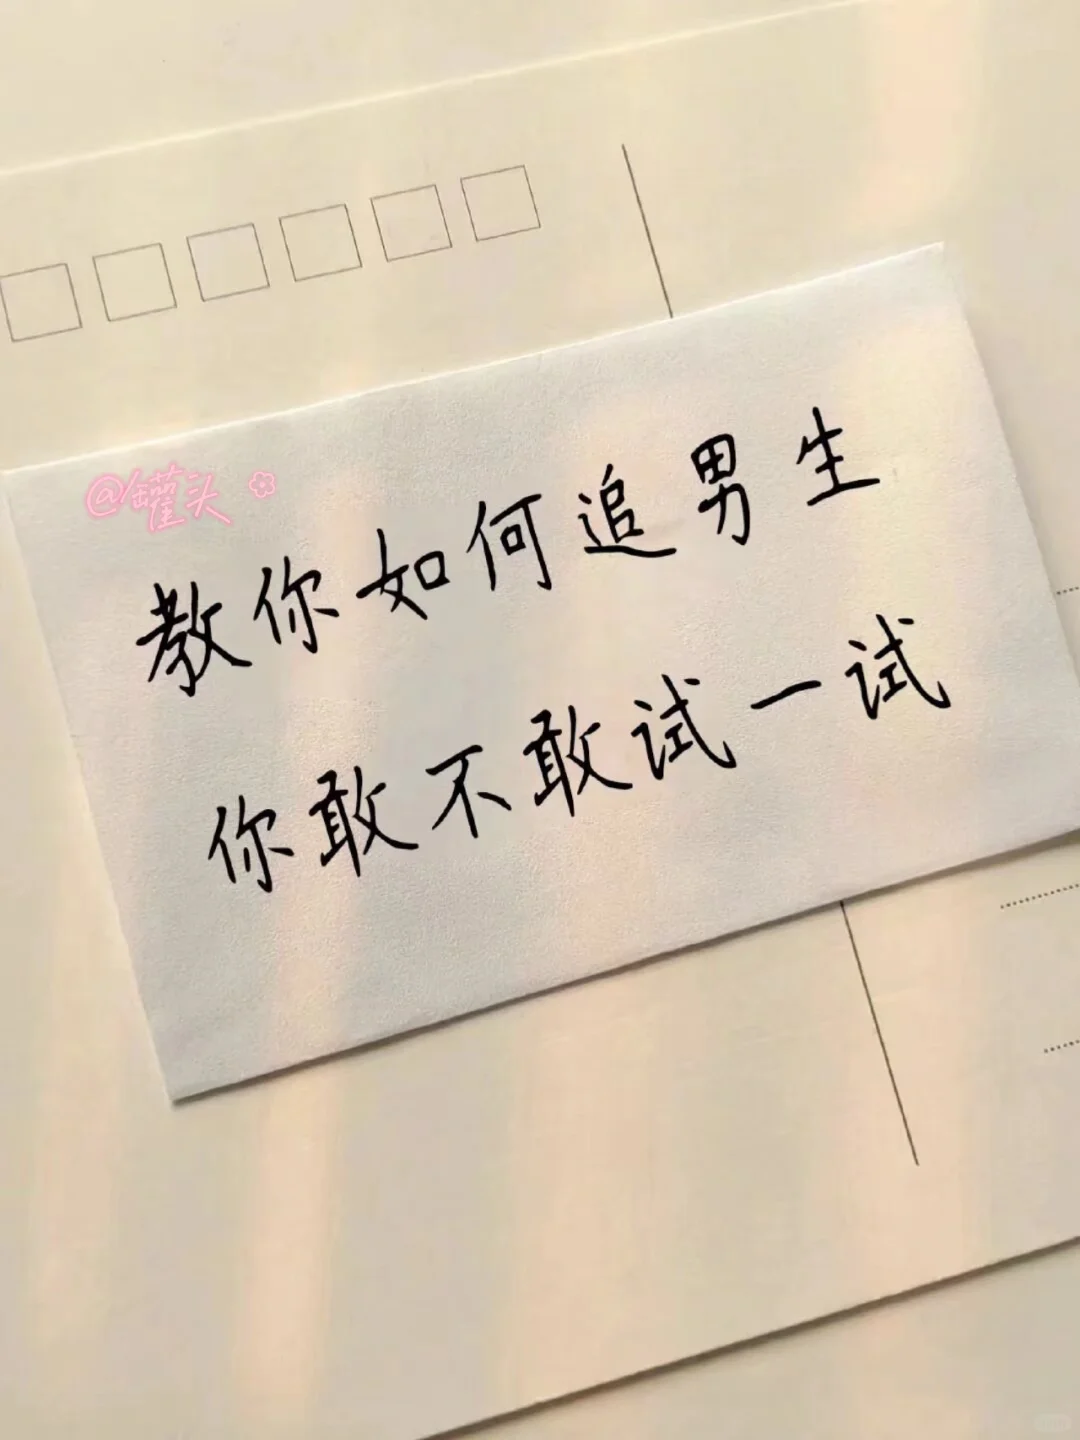 @罐头
教你如何追男生
你敢不敢试一试